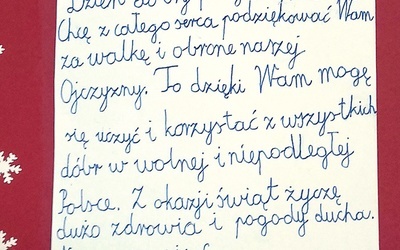 Chcę z całego serca podziękować Wam
za walkę i obronę naszej
Ojczyzny. To dzięki Wam mogę
się uczyć i korzystać z wszystkich
dóbr w wolnej i niepodległej
Polsce. Z okazji świąt życzę
dużo zdrowia i pogody ducha.